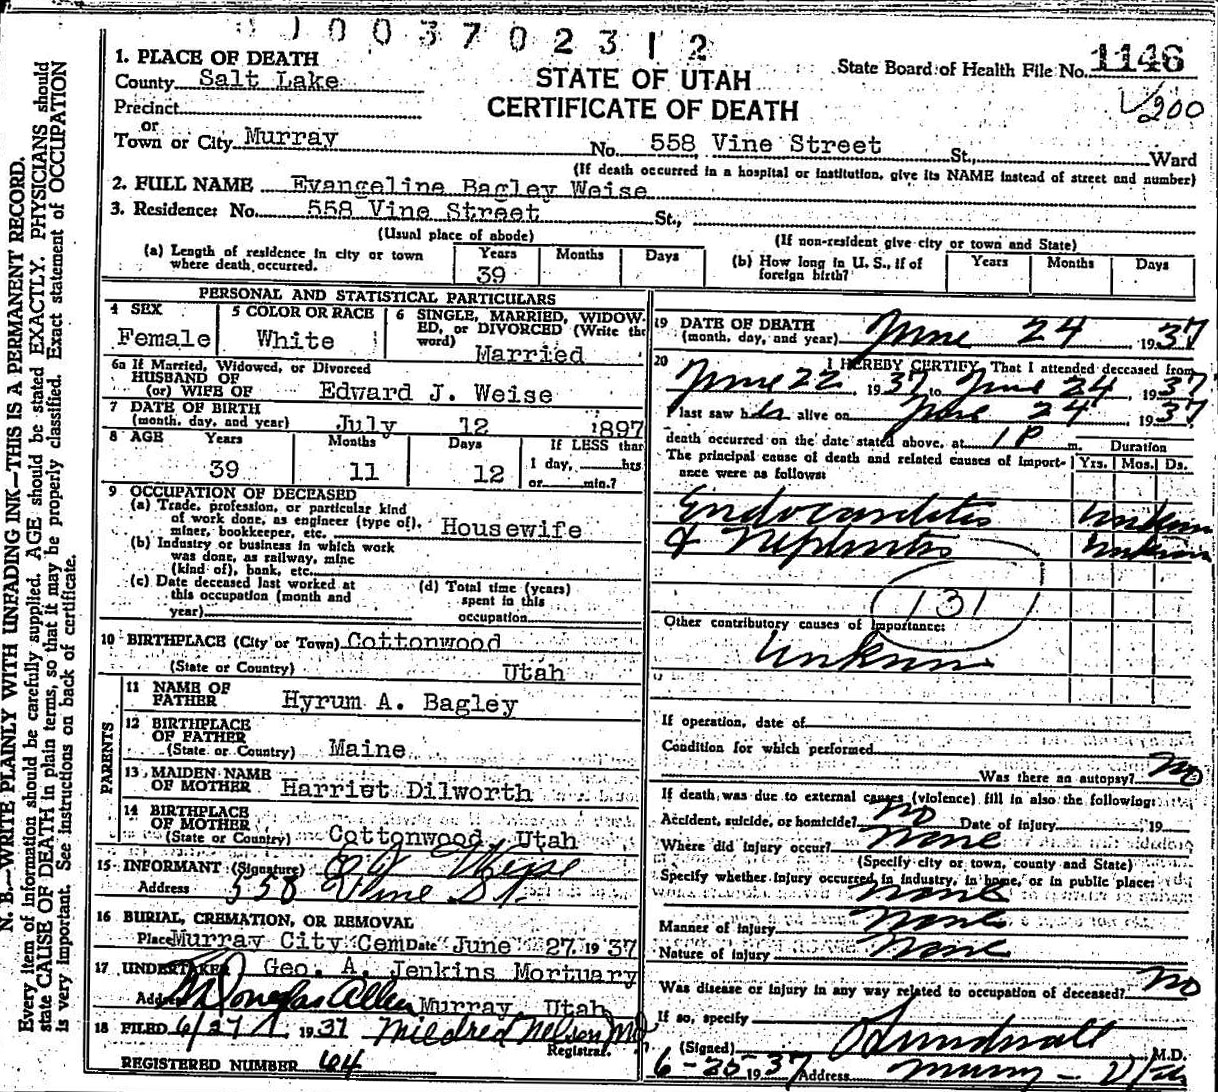 N. B.—WRITE PLAINLY WITH UNFADING INK—THIS IS A PERMANENT RECORD.
Every item of information should be carefully supplied. AGE should be stated EXACTLY. PHYSICIANS should
state CAUSE OF DEATH in plain terms, so that it may be properly classified. Exact statement of OCCUPATION
is very important. See instructions on back of certificate.
003702312
1. PLACE OF DEATH
County Salt Lake
STATE OF UTAH
CERTIFICATE OF DEATH
State Board of Health File No. 1146
200
Precinct
or
Town or City Murray No. 558 Vine Street St., Ward
(If death occurred in a hospital or institution, give its NAME instead of street and number)
2. FULL NAME Evangeline Bagley Weise
3. Residence: No. 558 Vine Street St.,
(Usual place of abode) (If non-resident give city or town and State)
(a) Length of residence in city or town where death occurred. Years 39 Months Days
(b) How long in U. S., if of foreign birth? Years Months Days
PERSONAL AND STATISTICAL PARTICULARS
4 SEX Female
5 COLOR OR RACE White
6 SINGLE, MARRIED, WIDOWED, or DIVORCED (Write the word) Married
6a If Married, Widowed, or Divorced
HUSBAND OF
(or) WIFE OF Edward J. Weise
7 DATE OF BIRTH
(month, day, and year) July 12 1897
8 AGE Years Months Days If LESS than
39 11 12 1 day, hrs
or min.?
9 OCCUPATION OF DECEASED
(a) Trade, profession, or particular kind
of work done, as engineer (type of),
miner, bookkeeper, etc. Housewife
(b) Industry or business in which work
was done, as railway, mine
(kind of), bank, etc.
(c) Date deceased last worked at
this occupation (month and
year)
(d) Total time (years)
spent in this
occupation
10 BIRTHPLACE (City or Town) Cottonwood
(State or Country) Utah
PARENTS
11 NAME OF
FATHER Hyrum A. Bagley
12 BIRTHPLACE
OF FATHER
(State or Country) Maine
13 MAIDEN NAME
OF MOTHER Harriet Dilworth
14 BIRTHPLACE
OF MOTHER
(State or Country) Cottonwood, Utah
15 INFORMANT (Signature) E J Weise
Address 558 Vine St.
16 BURIAL, CREMATION, OR REMOVAL
Place Murray City Cem Date June 27 1937
17 UNDERTAKER Geo. A. Jenkins Mortuary
Address M Douglas Allen Murray Utah
18 FILED 6/27 1937 Mildred Nelson MD
Registrar.
REGISTERED NUMBER 64
19 DATE OF DEATH
(month, day, and year) June 24, 1937
20 I HEREBY CERTIFY, That I attended deceased from
June 22, 1937 to June 24, 1937
I last saw her alive on June 24, 1937
death occurred on the date stated above, at 1 P m. Duration
The principal cause of death and related causes of importance were as follows: Yrs. Mos. Ds.
Endocarditis unknn
& Nephritis unknn
131
Other contributory causes of importance:
Unknn
If operation, date of
Condition for which performed
Was there an autopsy? no
If death was due to external causes (violence) fill in also the following:
Accident, suicide, or homicide? no Date of injury , 19
Where did injury occur? none
(Specify city or town, county and State)
Specify whether injury occurred in industry, in home, or in public place:
none
Manner of injury none
Nature of injury none
Was disease or injury in any way related to occupation of deceased? no
If so, specify
(Signed) Lundwall M.D.
6-25-1937 Address Murray - Utah